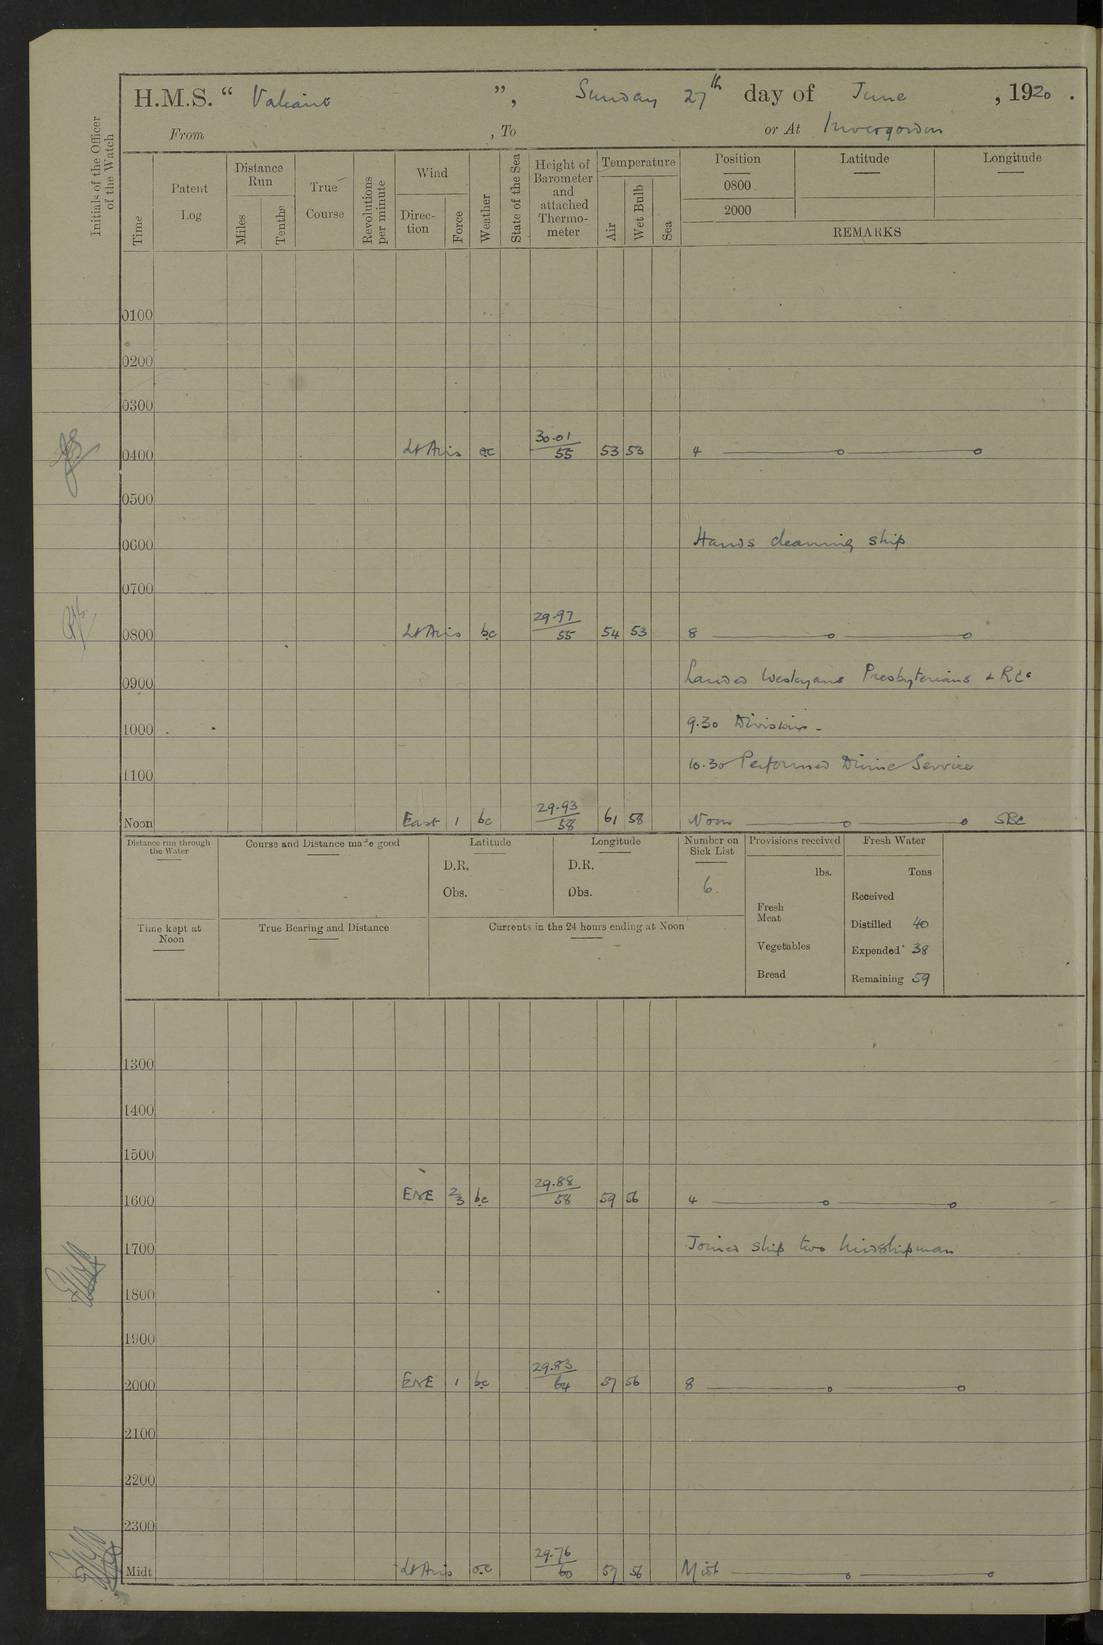 H.M.S. “ Valiant ”, Sunday 27th day of June , 1920 .
From , To or At Invergordon
Initials of the Officer of the Watch
Time
Patent Log
Distance Run
Miles
Tenths
True Course
Revolutions per minute
Wind
Direc-tion
Force
Weather
State of the Sea
Height of Barometer and attached Thermo-meter
Temperature
Air
Wet Bulb
Sea
Position Latitude Longitude
0800
2000
REMARKS
0100
0200
0300
0400 Lt Airs 30.01/55 53 53 4
0500
0600 Hands cleaning ship
0700
0800 Lt Airs bc 29.97/55 54 53 8
0900 Landed Wesleyans Presbyterians & RCs
1000 9.30 Divisions.
1100 10.30 Performed Divine Service
Noon East 1 bc 29.93/58 61 58 Noon
Distance run through the Water
Course and Distance made good
Latitude
D.R.
Obs.
Longitude
D.R.
Obs.
Number on Sick List
6.
Provisions received
lbs.
Fresh Meat
Vegetables
Bread
Fresh Water
Tons
Received
Distilled 40
Expended 38
Remaining 59
Time kept at Noon
True Bearing and Distance
Currents in the 24 hours ending at Noon
1300
1400
1500
1600 ENE 2/3 bc 29.88/58 59 56 4
1700 Joined ship two Midshipman
1800
1900
2000 ENE 1 bc 29.83/64 57 56 8
2100
2200
2300
Midt Lt Airs 29.76/60 57 56 Midt